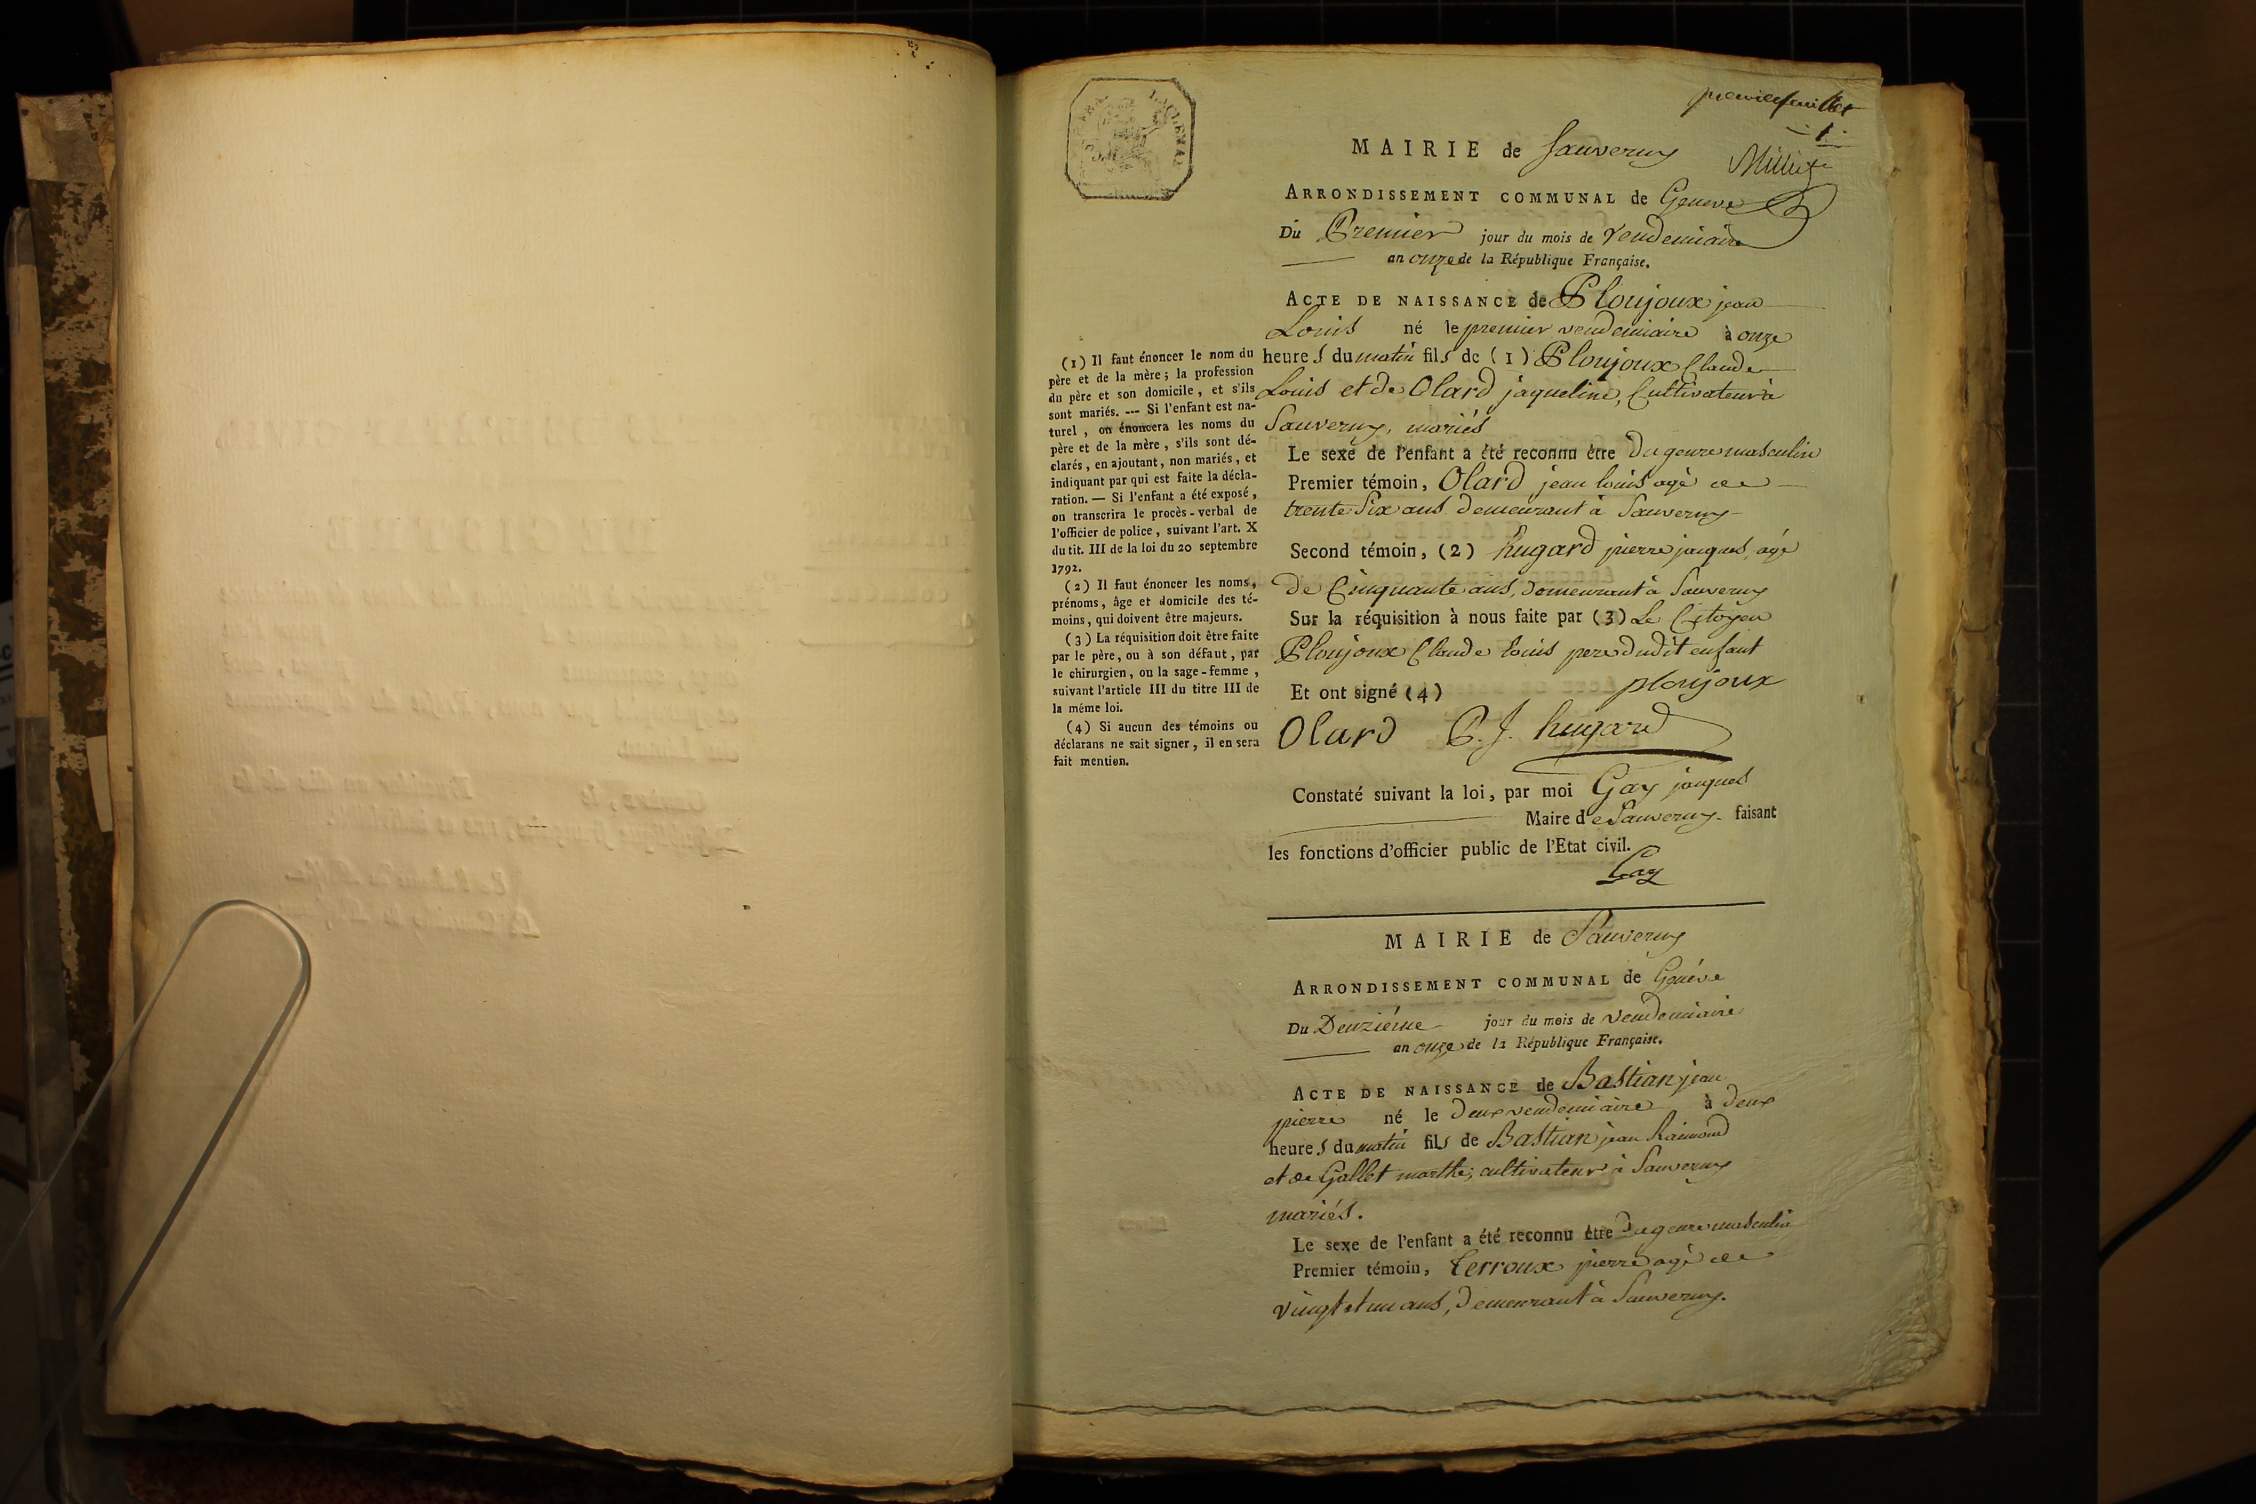 premier feuillet
1
MAIRIE de Sauverny
Milliet
ARRONDISSEMENT COMMUNAL de Geneve
Du Premier jour du mois de Vendemiaire
an onze de la République Française.
ACTE DE NAISSANCE de Ploujoux jean
Louis né le premier vendemiaire à onze
heures du matin fils de (1) Ploujoux Claude
Louis et de Olard jaqueline, Cultivateur à
Sauverny, mariés
Le sexe de l'enfant a été reconnu être du genre masculin
Premier témoin, Olard jean louis agé de
trente Six ans demeurant à Sauverny
Second témoin, (2) hugard pierre jacques, agé
de Cinquante ans, demeurant à Sauverny
Sur la réquisition à nous faite par (3) Le Citoyen
Ploujoux Claude louis pere dudit enfant
Et ont signé (4) ploujoux
Olard P. J. hugard
Constaté suivant la loi, par moi Gay jacques
Maire de Sauverny faisant
les fonctions d'officier public de l'Etat civil.
Gay
(1) Il faut énoncer le nom du
père et de la mère; la profession
du père et son domicile, et s'ils
sont mariés. --- Si l'enfant est na-
turel, on énoncera les noms du
père et de la mère, s'ils sont dé-
clarés, en ajoutant, non mariés, et
indiquant par qui est faite la décla-
ration. — Si l'enfant a été exposé,
on transcrira le procès-verbal de
l'officier de police, suivant l'art. X
du tit. III de la loi du 20 septembre
1792.
(2) Il faut énoncer les noms,
prénoms, âge et domicile des té-
moins, qui doivent être majeurs.
(3) La réquisition doit être faite
par le père, ou à son défaut, par
le chirurgien, ou la sage-femme,
suivant l'article III du titre III de
la même loi.
(4) Si aucun des témoins ou
déclarans ne sait signer, il en sera
fait mention.
MAIRIE de Sauverny
ARRONDISSEMENT COMMUNAL de Genéve
Du Deuziéme jour du mois de Vendemiaire
an onze de la République Française.
ACTE DE NAISSANCE de Bastian jean
pierre né le deux vendemiaire à deux
heures du matin fils de Bastian jean Raimond
et de Gallet marthe, cultivateur à Sauverny
mariés.
Le sexe de l'enfant a été reconnu être du genre masculin
Premier témoin, terroux pierre agé de
vingt et un ans, demeurant à Sauverny.